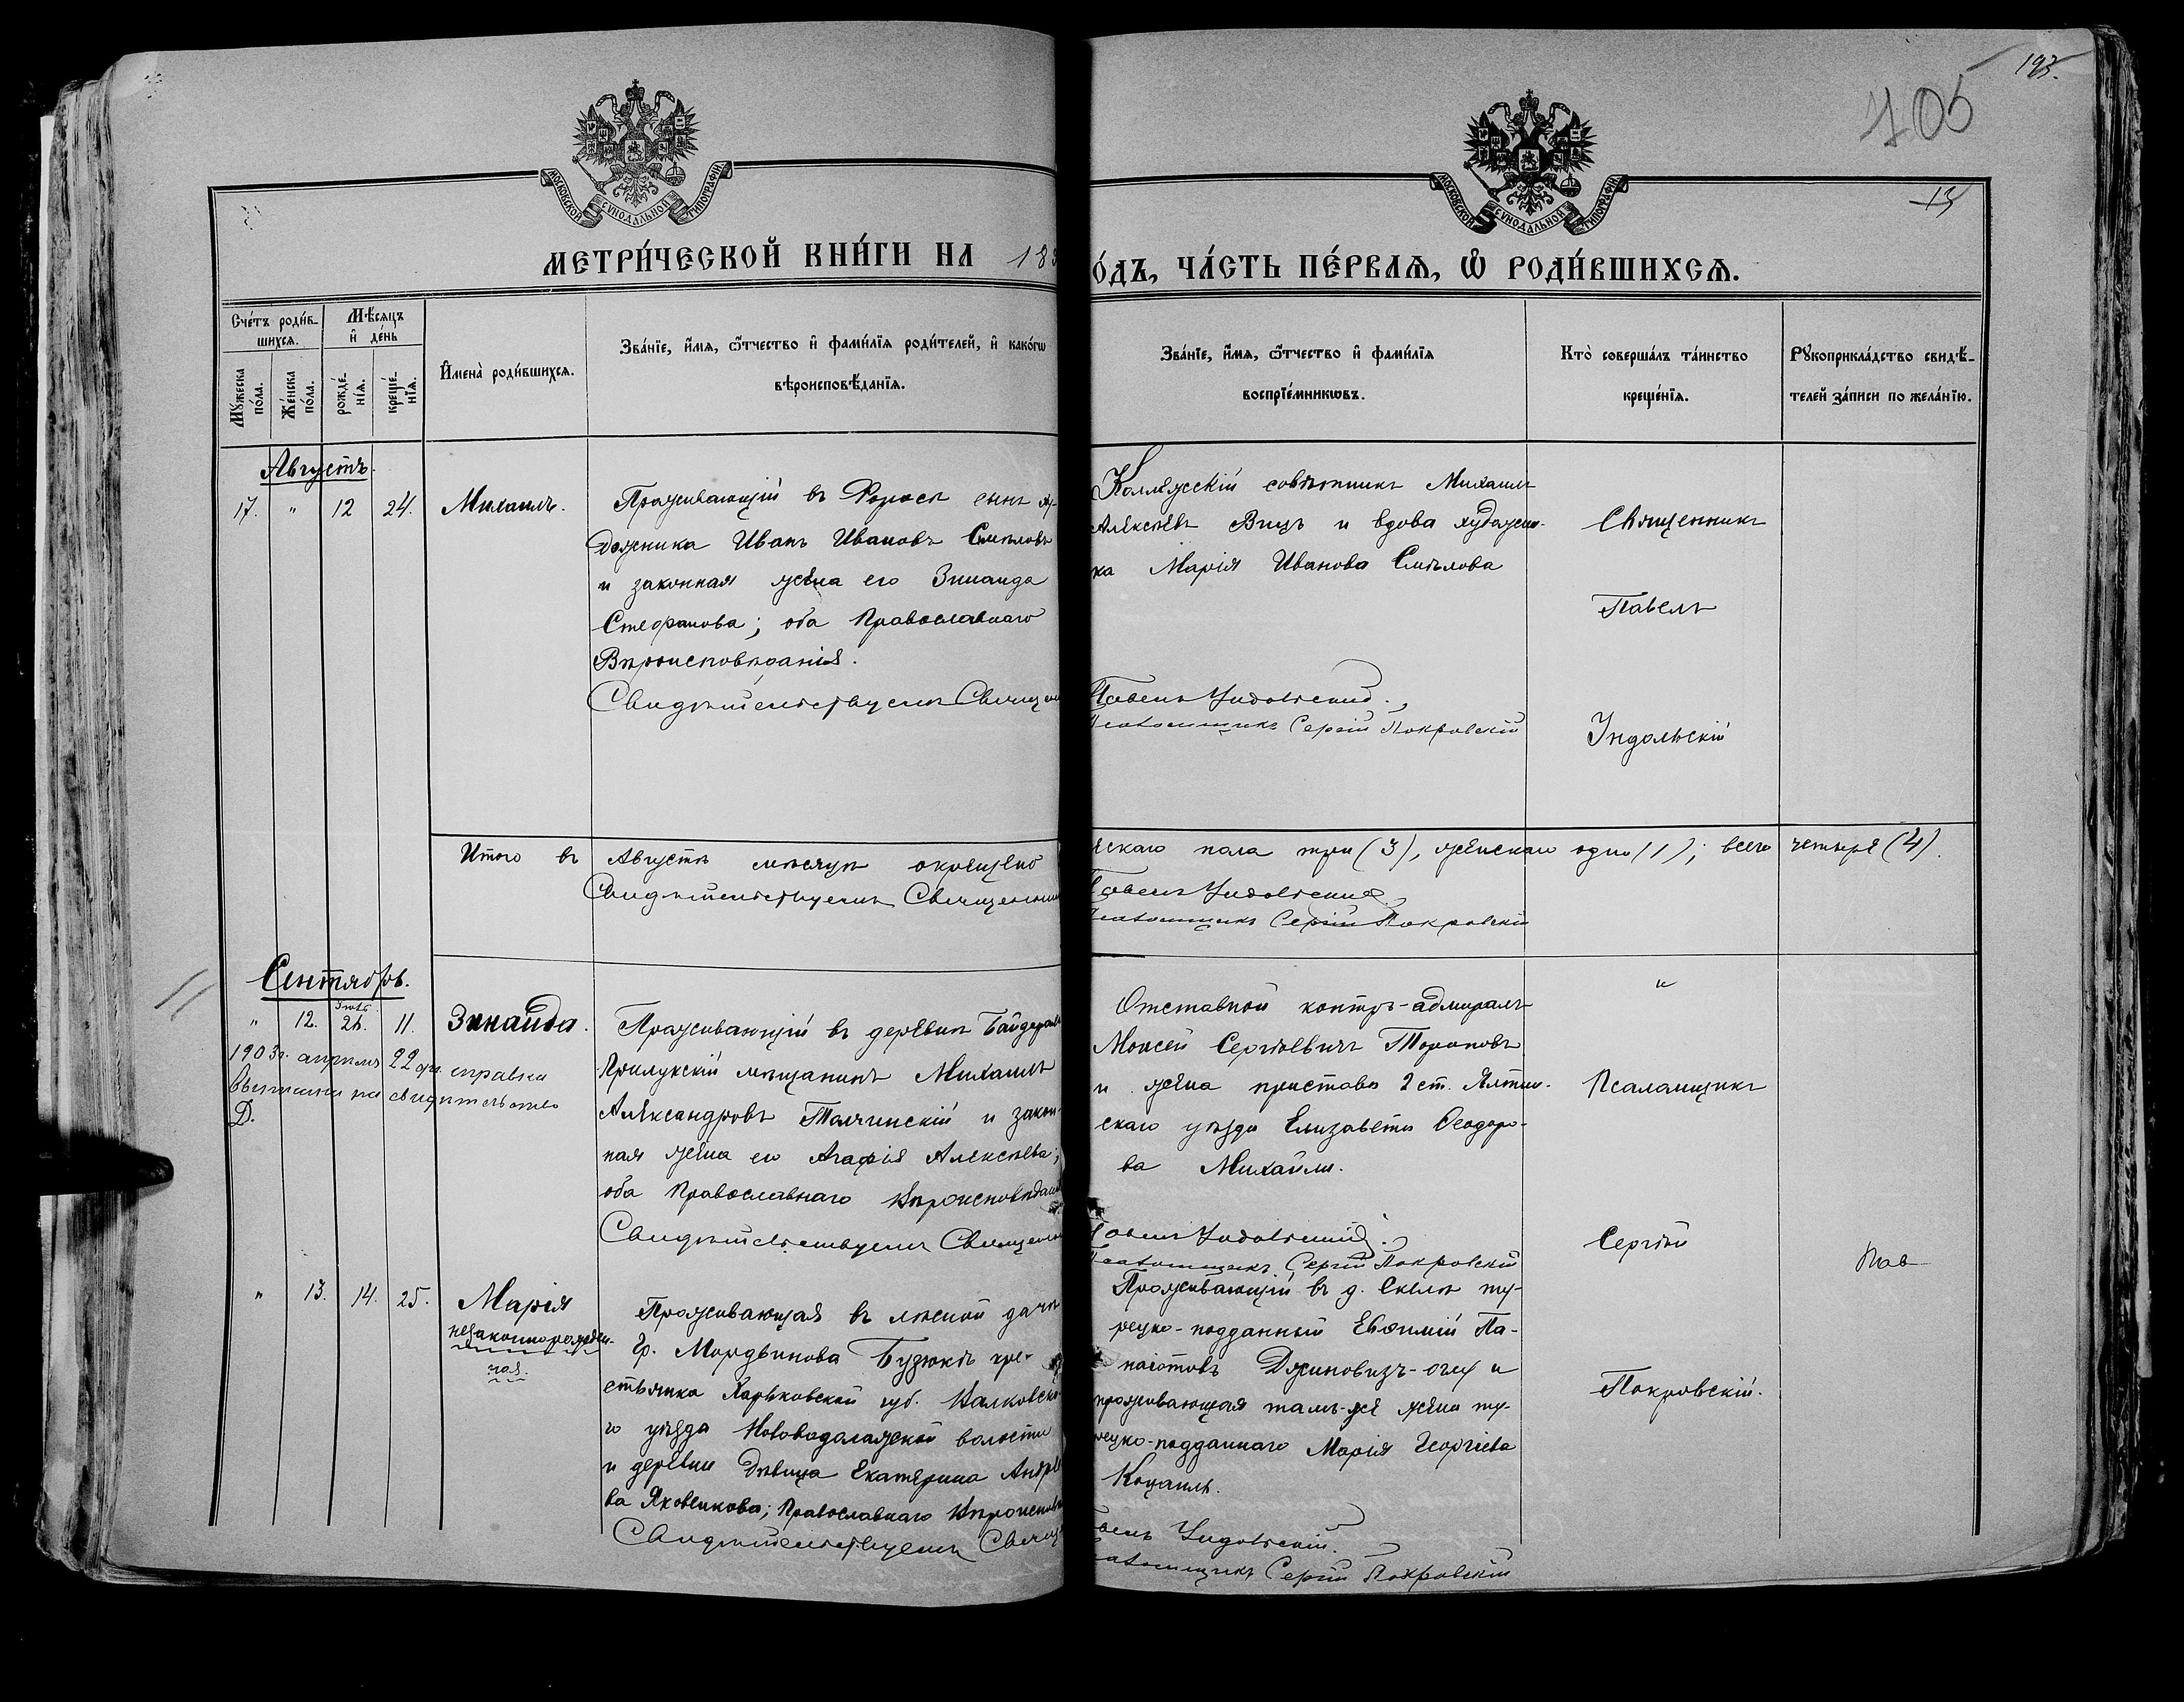 193.
405
13
МОСКОВСКОЙ СѴНОДАЛЬНОЙ ТИПОГРАФІИ
МОСКОВСКОЙ СѴНОДАЛЬНОЙ ТИПОГРАФІИ
МЕТРИ́ЧЕСКОЙ КНИ́ГИ НА 18
О́ДЪ, ЧА́СТЬ ПЕ́РВАѦ, Ѽ РОДИ́ВШИХСѦ.
Сче́тъ роди́в-
шихсѧ.
Мꙋжеска по́ла.
Же́нска по́ла.
Мѣ́сѧцъ
и҆ де́нь
рожде́-
нїѧ.
креще́-
нїѧ.
И҆мена̀ роди́вшихсѧ.
Зва́нїе, и҆́мѧ, ѻ҆́тчество и҆ фами́лїѧ роди́телей, и҆ како́гѡ
вѣроисповѣ́данїѧ.
Зва́нїе, и҆́мѧ, ѻ҆́тчество и҆ фами́лїѧ
воспрїе́мникѡвъ.
Кто̀ соверша́лъ та́инство
креще́нїѧ.
Рꙋкоприкла́дство свидѣ́-
телей за́писи по жела́нїю.
Августъ.
17. " 12 24. Михаилъ.
Проживающій въ Форосѣ сынъ ху-
дожника Иванъ Ивановъ Смѣловъ
и законная жена его Зинаида
Стефанова; оба Православнаго
Вѣроисповѣданія.
Свидѣтельствуемъ Священ
Коллежскій совѣтникъ Михаилъ
Алексѣевъ Вицъ и вдова художни-
ка Марія Иванова Смѣлова
Павелъ Индольскій.
Псаломщикъ Сергій Покровскій
Священникъ
Павелъ
Индольскій
Итого въ Августѣ мѣсяцѣ окрещено
жескаго пола три (3), женскаго одно (1); всего четыре (4).
Свидѣтельствуемъ Священник
Павелъ Индольскій.
Псаломщикъ Сергій Покровскій
Сентябрь.
" 12. 26. 11. Зинаида.
1903 г. апрѣля 22 дн. справка
выписана на свидѣтельство
Д.
Проживающій въ деревнѣ Байдарахъ
Прилукскій мѣщанинъ Михаилъ
Александровъ Талчинскій и закон-
ная жена его Агафія Алексѣева;
оба Православнаго Вѣроисповѣдан
Свидѣтельствуемъ Священ
Отставной контръ-адмиралъ
Моисей Сергѣевичъ Тороповъ
и жена пристава 2 ст. Ялтин-
скаго уѣзда Елизавета Ѳеодоро-
ва Михайли.
Павелъ Индольскій.
Псаломщикъ Сергій Покровскій
"
Псаломщикъ
Сергѣй
Покровскій.
Пав
" 13. 14. 25. Марія
незаконнорожден-
ная.
Проживающая въ лѣсной дачѣ
Гр. Мордвинова Бузюкъ кре-
стьянка Харьковской губ. Валковска-
го уѣзда Нововодолажской волости
и деревни дѣвица Екатерина Андре
ва Яковенкова; Православнаго Вѣроисповѣ
Свидѣтельствуемъ Священ
Проживающій въ д. Скеля ту-
рецко-подданный Евѳимій Па-
наіотовъ Джиновизъ-оглу и
проживающая тамъ-же жена ту-
рецко-подданнаго Марія Георгіева
Коцаилъ.
Павелъ Индольскій.
Псаломщикъ Сергій Покровскій